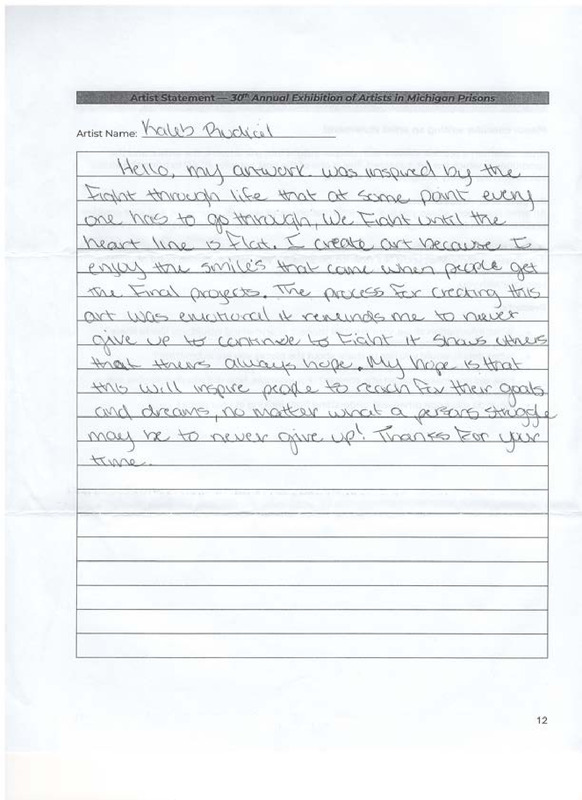 Artist Statement — 30th Annual Exhibition of Artists in Michigan Prisons
Artist Name: Kaleb
Hello, my artwork was inspired by the
Fight through life that at some point every
one has to go through, We Fight until the
heart line is Flat. I create art because I
enjoy the smile's that come when people get
the Final projects. The process for creating this
art was emotional it reminds me to never
give up to continue to Fight it shows others
that theirs always hope. My hope is that
this will inspire people to reach for their goals
and dreams, no matter what a persons struggle
may be to never give up! Thanks For your
time.
12